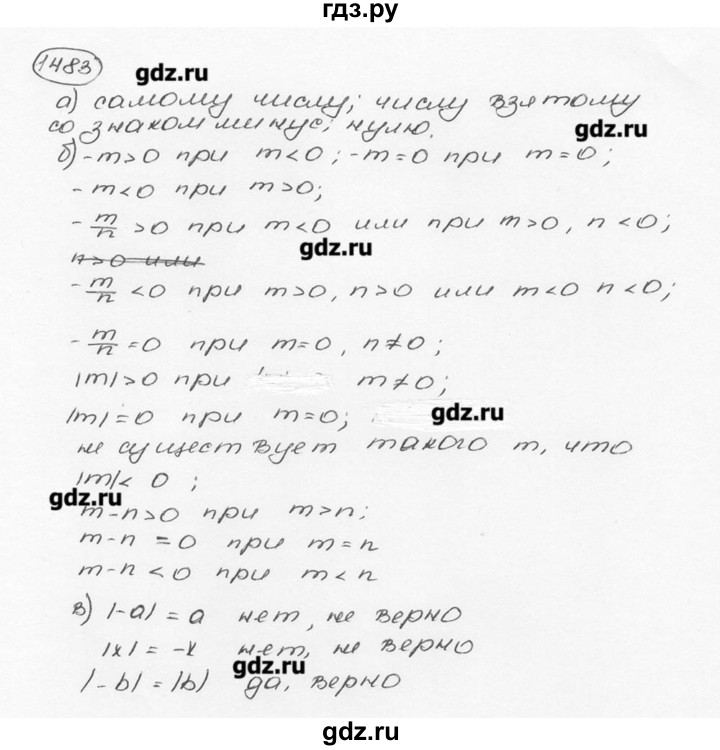 гдз.ру
1483
gdz.ru
а) самому числу; числу взятому
со знаком минус; нулю.
gdz.ru
б) -m>0 при m<0; -m=0 при m=0;
-m<0 при m>0;
-m/n >0 при m<0 или при m>0, n<0;
gdz.ru
n>0 или
-m/n <0 при m>0, n>0 или m<0 n<0;
-m/n =0 при m=0, n≠0;
|m|>0 при m≠0;
|m|=0 при m=0;
gdz.ru
не существует такого m, что
|m|< 0;
gdz.ru
m-n>0 при m>n;
m-n =0 при m=n
m-n<0 при m<n
в) |-a| = a нет, не верно
|x| = -x нет, не верно
gdz.ru
|-b| = |b| да, верно
gdz.ru